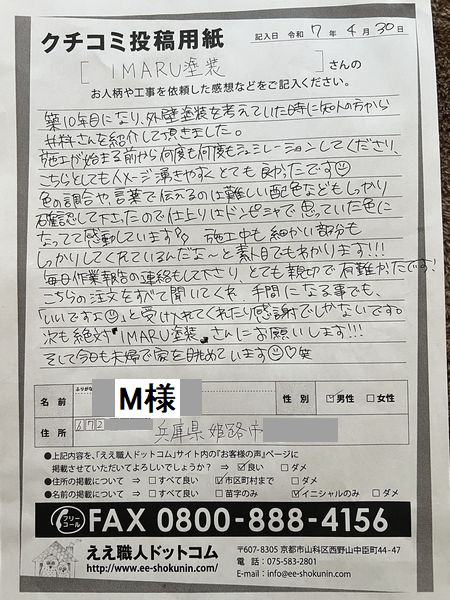 クチコミ投稿用紙
記入日 令和 7 年 4 月 30 日
[ IMARU塗装 ]さんの
お人柄や工事を依頼した感想などをご記入ください。
築10年目になり、外壁塗装を考えていた時に知人の方から
井料さんを紹介して頂きました。
施工が始まる前から何度も何度もシュミレーションしてくださり、
こちらとしてもイメージ湧きやすくとても良かったです☺
色の調合や言葉で伝えるのは難しい配色などもしっかり
確認して下さったので仕上りはドンピシャで思っていた色に
なってて感動しています 施工中も細かい部分も
しっかりしてくれているんだな〜と素人目でもわかります!!!
毎日作業報告の連絡もして下さり、とても親切で有難かったです!
こちらの注文をすべて聞いてくれ、手間になる事でも、
「いいですよ☺」と受け入れてくれたり感謝でしかないです。
次も絶対"IMARU塗装"さんにお願いします!!!
そして今日も夫婦で家を眺めています☺♡笑
ふりがな
名前 M様 性別 ☑男性 □女性
住所 672 兵庫県姫路市
●上記内容を、「ええ職人ドットコム」サイト内の『お客様の声』ページに
掲載させていただいてよろしいでしょうか? ⇒ ☑良い □ダメ
●住所の掲載について ⇒ □すべて良い ☑市区町村まで □ダメ
●名前の掲載について ⇒ □すべて良い □苗字のみ ☑イニシャルのみ □ダメ
フリーコール FAX 0800-888-4156
ええ職人ドットコム
http://www.ee-shokunin.com/
〒607-8305 京都市山科区西野山中臣町44-47
電話:075-583-2801
E-mail:info@ee-shokunin.com